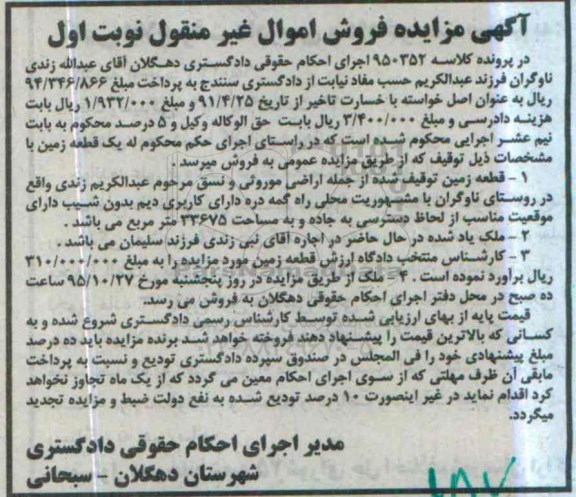 آگهی مزایده فروش اموال غیر منقول نوبت اول
در پرونده کلاسه ۹۵۰۳۵۲ اجرای احکام حقوقی دادگستری دهگلان آقای عبدالله زندی
ناوگران فرزند عبدالکریم حسب مفاد نیابت از دادگستری سنندج به پرداخت مبلغ ۹۴/۳۴۶/۸۶۶
ریال به عنوان اصل خواسته با خسارت تاخیر از تاریخ ۹۱/۴/۲۵ و مبلغ ۱/۹۳۲/۰۰۰ ریال بابت
هزینه دادرسی و مبلغ ۳/۴۰۰/۰۰۰ ریال بابت حق الوکاله وکیل و ۵ درصد محکوم به بابت
نیم عشر اجرایی محکوم شده است که در راستای اجرای حکم محکوم له یک قطعه زمین با
مشخصات ذیل توقیف که از طریق مزایده عمومی به فروش میرسد .
۱ - قطعه زمین توقیف شده از جمله اراضی موروثی و نسق مرحوم عبدالکریم زندی واقع
در روستای ناوگران با مشهوریت محلی راه گمه دره دارای کاربری دیم بدون شیب دارای
موقعیت مناسب از لحاظ دسترسی به جاده و به مساحت ۳۳۶۷۵ متر مربع می باشد .
۲ - ملک یاد شده در حال حاضر در اجاره آقای نبی زندی فرزند سلیمان می باشد .
۳ - کارشناس منتخب دادگاه ارزش قطعه زمین مورد مزایده را به مبلغ ۳۱۰/۰۰۰/۰۰۰
ریال برآورد نموده است . ۴ - ملک از طریق مزایده در روز پنجشنبه مورخ ۹۵/۱۰/۲۷ ساعت
ده صبح در محل دفتر اجرای احکام حقوقی دهگلان به فروش می رسد.
قیمت پایه از بهای ارزیابی شده توسط کارشناس رسمی دادگستری شروع شده و به
کسانی که بالاترین قیمت را پیشنهاد دهند فروخته خواهد شد برنده مزایده باید ده درصد
مبلغ پیشنهادی خود را فی المجلس در صندوق سپرده دادگستری تودیع و نسبت به پرداخت
مابقی آن ظرف مهلتی که از سوی اجرای احکام معین می گردد که از یک ماه تجاوز نخواهد
کرد اقدام نماید در غیر اینصورت ۱۰ درصد تودیع شده به نفع دولت ضبط و مزایده تجدید
میگردد.
مدیر اجرای احکام حقوقی دادگستری
شهرستان دهگلان - سبحانی